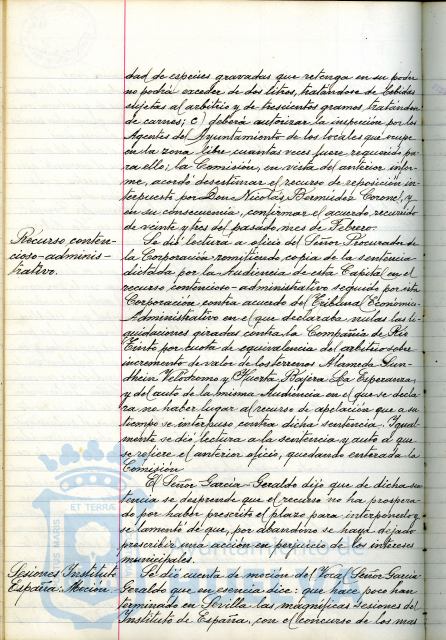 dad de especies gravadas que retenga en su poder
no podrá exceder de dos litros, tratándose de bebidas
sujetas al arbitrio y de trescientos gramos tratándose
de carnes; c) deberá autorizar la inspección por los
Agentes del Ayuntamiento de los locales que ocupe
en la zona libre cuantas veces fuere requerido pa-
ra ello; la Comisión, en vista del anterior infor-
me, acordó desestimar el recurso de reposición in-
terpuesto por Don Nicolás Bermúdez Coronel, y
en su consecuencia, confirmar el acuerdo recurrido
de veinte y tres del pasado mes de Febrero.
Recurso conten-
cioso-adminis-
trativo.
Se dió lectura a oficio del Señor Procurador de
la Corporación remitiendo copia de la sentencia
dictada por la Audiencia de esta Capital en el
recurso contencioso-administrativo seguido por esta
Corporación contra acuerdo del Tribunal Económico-
Administrativo en el que declaraba nulas las li-
quidaciones giradas contra la Compañía de Río
Tinto por cuota de equivalencia del arbitrio sobre
incremento de valor de los terrenos Alameda Sun-
dheim Velódromo y Huerta Bajira La Esperanza,
y del auto de la misma Audiencia en el que se decla-
ra no haber lugar al recurso de apelación que a su
tiempo se interpuso contra dicha sentencia. Igual-
mente se dió lectura a la sentencia y auto a que
se refiere el anterior oficio, quedando enterada la
Comisión.
El Señor García-Geraldo dijo que de dicha sen-
tencia se desprende que el recurso no ha prospera-
do por haber prescrito el plazo para interponerlo y
se lamentó de que, por abandono se haya dejado
prescribir una acción en perjuicio de los intereses
municipales.
Sesiones Instituto
España. Moción.
Se dió cuenta de moción del Vocal Señor García
Geraldo que en esencia dice: que hace poco han
terminado en Sevilla las magníficas sesiones del
Instituto de España, con el concurso de los mas
ET TERRA